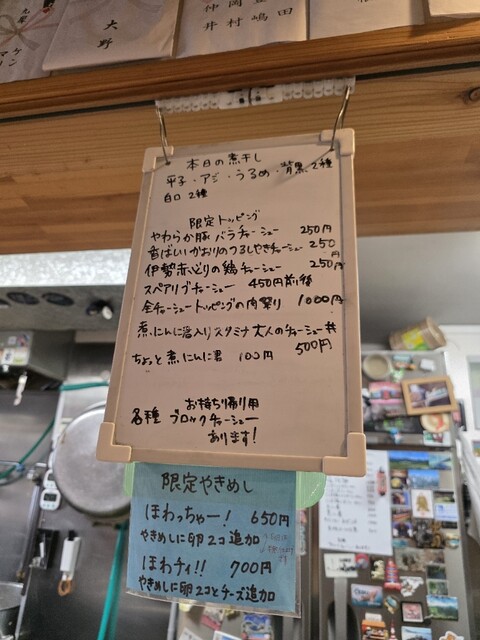 大野
仲井
岡村
嶋
田
本日の煮干し
平子・アジ・うるめ・背黒2種
白口 2種
限定トッピング
やわらか豚バラチャーシュー 250円
香ばしいかおりのつるしやきチャーシュー 250円
伊勢赤どりの鶏チャーシュー 250円
スペアリブチャーシュー 450円前後
全チャーシュートッピングの肉祭り 1000円
煮にんに君入りスタミナ大人のチャーシュー丼 500円
ちょっと煮にんに君 100円
お持ち帰り用
各種 ブロックチャーシュー
あります!
限定やきめし
ほわっちゃー! 650円
やきめしに卵2コ追加
ほわチィ!! 700円
やきめしに卵2コとチーズ追加